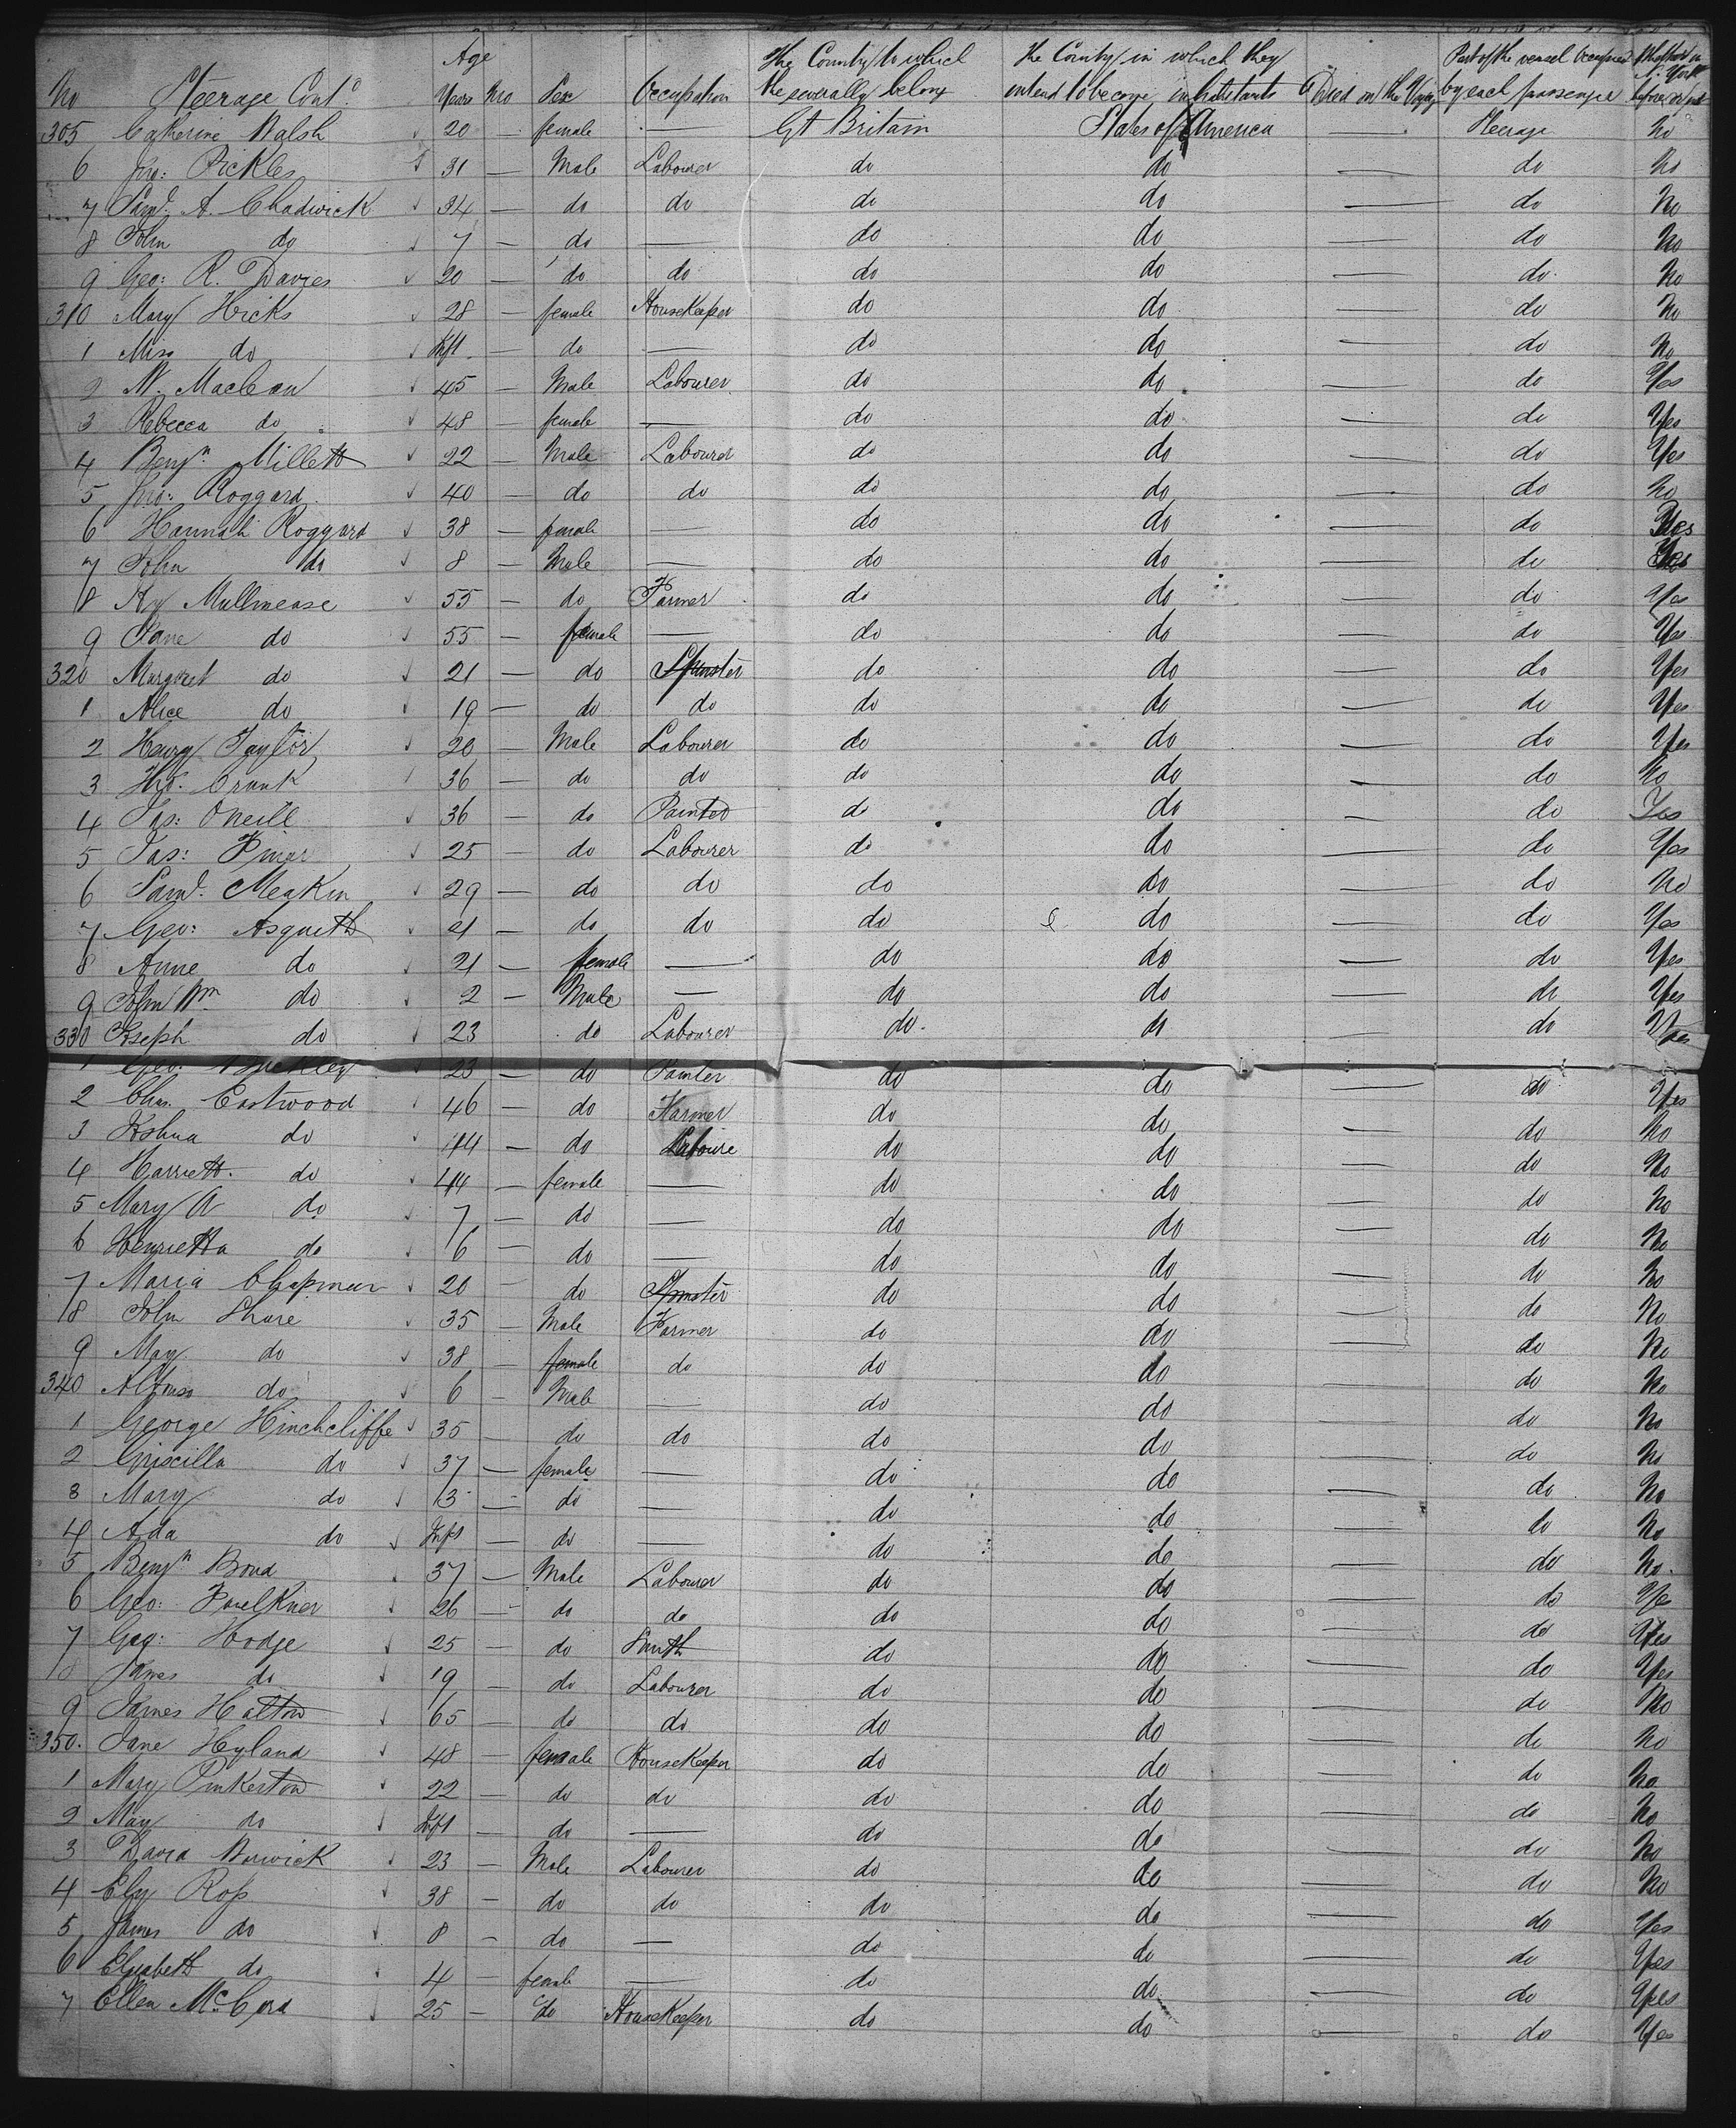 No Steerage Cont.d Age Years Mo Sex Occupation The Country to which the severally belong The Country in which they intend to become inhabitants Died on the Voyage Part of the vessel occupied by each passenger Whether in N. York before or not
305 Catherine Walsh 20 — female — Gt Britain States of America — Steerage No
6 Jno: Pickles 31 — Male Labourer do do — do No
7 Saml. A. Chadwick 34 — do do do do — do No
8 John do 7 — do — do do — do No
9 Geo: R. Davies 20 — do do do do — do No
310 Mary Hicks 28 — female HouseKeeper do do — do No
1 Miss do Inft — do — do do — do No
2 W. Maclean 45 — Male Labourer do do — do Yes
3 Rebecca do 48 — female — do do — do Yes
4 Benjn. Millett 22 — Male Labourer do do — do Yes
5 Jno: Roggard 40 — do do do do — do No
6 Hannah Roggard 38 — female — do do — do Yes
7 John do 8 — Male — do do — do Yes
8 Hy Mullinease 55 — do Farmer do do — do Yes
9 Jane do 55 — female — do do — do Yes
320 Margaret do 21 — do Spinster do do — do Yes
1 Alice do 19 — do do do do — do Yes
2 Henry Taylor 20 — Male Labourer do do — do Yes
3 Crank 36 — do do do do — do No
4 Jas: ONeill 36 — do Painter do do — do Yes
5 Jas: 25 — do Labourer do do — do Yes
6 Saml. Meakin 29 — do do do do — do No
7 Geo: Asquith 21 — do do do do — do Yes
8 Anne do 21 — female — do do — do Yes
9 John Wm. do 2 — Male — do do — do Yes
330 Joseph do 23 do Labourer do do — do Yes
1 Geo: Buckley 23 — do Painter do do — do Yes
2 Chas. Eastwood 46 — do Farmer do do — do No
3 Joshua do 44 — do Laboure do do — do No
4 Harriett. do 44 — female — do do — do No
5 Mary A do 7 — do — do do — do No
6 Henrietta do 6 — do — do do — do No
7 Maria Chapman 20 — do Spinster do do — do No
8 John Shore 35 — Male Farmer do do — do No
9 May do 38 — female do do do — do No
340 Alfonso do 6 — Male — do do — do No
1 George Hinchcliffe 35 — do do do do — do No
2 Griscilla do 37 — female — do do — do No
3 Mary do 13 — do — do do — do No
4 Ada do Inft — do — do do — do No.
5 Benjn Boud 37 — Male Labourer do do — do Yes
6 Geo: Faulkner 26 — do do do do — do Yes
7 Geo: Hodge 25 — do Smith do do — do Yes
8 James do 19 — do Labourer do do — do No
9 James Halton 65 — do do do do — do No
350. Jane Hyland 48 — female HouseKeeper do do — do No
1 Mary Pinkerton 22 — do do do do — do No
2 May do Inft — do — do do — do No
3 David Warwick 23 — Male Labourer do do — do No
4 Ely Ross 38 — do do do do — do Yes
5 James do 8 — do — do do — do Yes
6 Elizabeth do 4 — female — do do — do Yes
7 Ellen McCord 25 — do HouseKeeper do do — do Yes